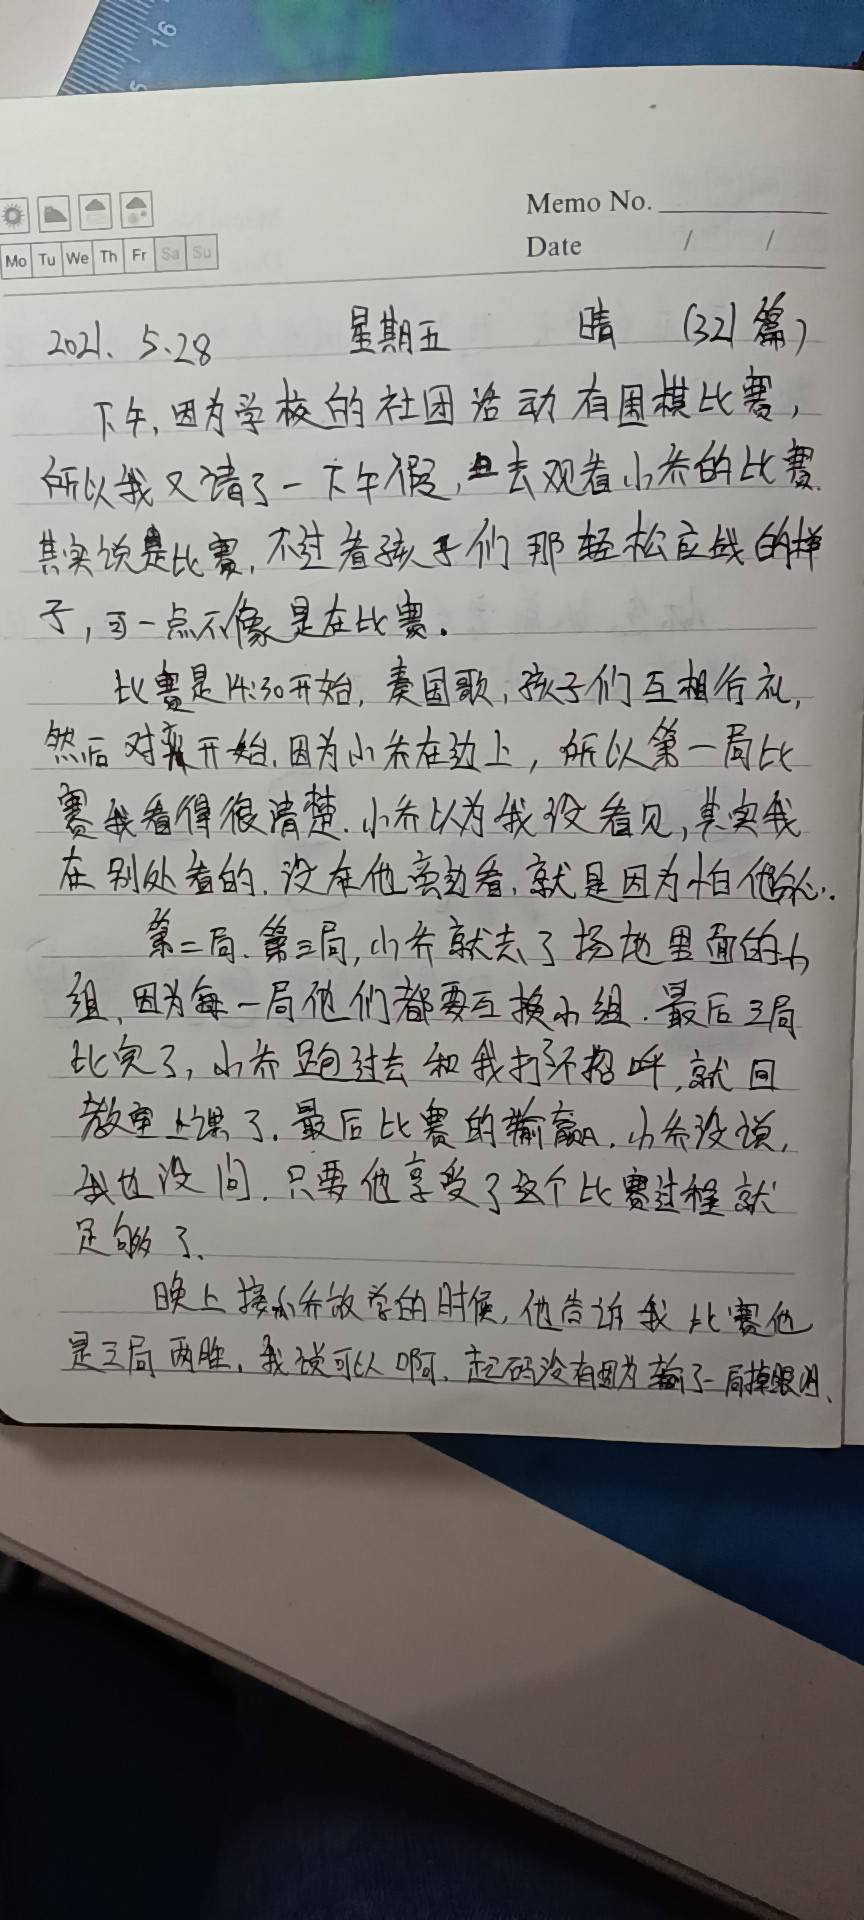 16
Memo No.
Mo Tu We Th Fr Sa Su
Date / /
2021. 5.28 星期五 晴 (321篇)
下午,因为学校的社团活动有围棋比赛,
所以我又请了一下午假,去观看小乔的比赛.
其实说是比赛,不过看孩子们那轻松应战的样
子,可一点不像是在比赛.
比赛是14:30开始,奏国歌,孩子们互相行礼,
然后对弈开始.因为小乔在边上,所以第一局比
赛我看得很清楚.小乔以为我没看见,其实我
在别处看的.没在他旁边看,就是因为怕他分心.
第二局.第三局,小乔就去了场地里面的小
组,因为每一局他们都要互换小组.最后三局
比完了,小乔跑过去和我打了个招呼,就回
教室上课了.最后比赛的输赢,小乔没说,
我也没问.只要他享受了这个比赛过程就
足够了.
晚上接小乔放学的时候,他告诉我比赛他
是三局两胜,我说可以啊,起码没有因为输了一局掉眼泪.